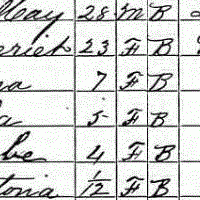 May 28 M B
riet 23 F B
a 7 F B
a 5 F B
be 4 F B
toria 1/12 F B